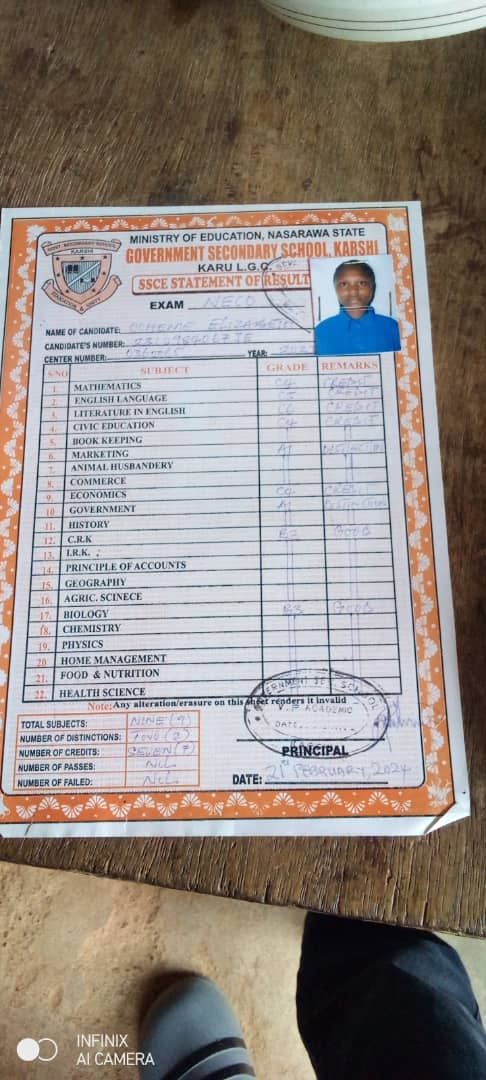 GOVT. SECONDARY SCHOOL
KARSHI
MINISTRY OF EDUCATION, NASARAWA STATE
GOVERNMENT SECONDARY SCHOOL, KARSHI
KARU L.G.C.
SSCE STATEMENT OF RESULT
EXAM NECO
NAME OF CANDIDATE: ELIZABETH
CANDIDATE'S NUMBER:
CENTER NUMBER: YEAR:
S/NO SUBJECT GRADE REMARKS
1. MATHEMATICS C4 CREDIT
2. ENGLISH LANGUAGE C5 CREDIT
3. LITERATURE IN ENGLISH C6 CREDIT
4. CIVIC EDUCATION C4 CREDIT
5. BOOK KEEPING
6. MARKETING A1 DISTINCTION
7. ANIMAL HUSBANDERY
8. COMMERCE
9. ECONOMICS C4 CREDIT
10 GOVERNMENT A1 DISTINCTION
11. HISTORY
12. C.R.K B3 GOOD
13. I.R.K. :
14. PRINCIPLE OF ACCOUNTS
15. GEOGRAPHY
16. AGRIC. SCINECE
17. BIOLOGY B3 GOOD
18. CHEMISTRY
19. PHYSICS
20 HOME MANAGEMENT
21. FOOD & NUTRITION
22. HEALTH SCIENCE
Note: Any alteration/erasure on this sheet renders it invalid
TOTAL SUBJECTS: NINE (9)
NUMBER OF DISTINCTIONS: TWO (2)
NUMBER OF CREDITS: SEVEN (7)
NUMBER OF PASSES: NIL
NUMBER OF FAILED: NIL
V. P ACADEMIC
DATE
PRINCIPAL
DATE: 21ST FEBRUARY, 2024
INFINIX
AI CAMERA